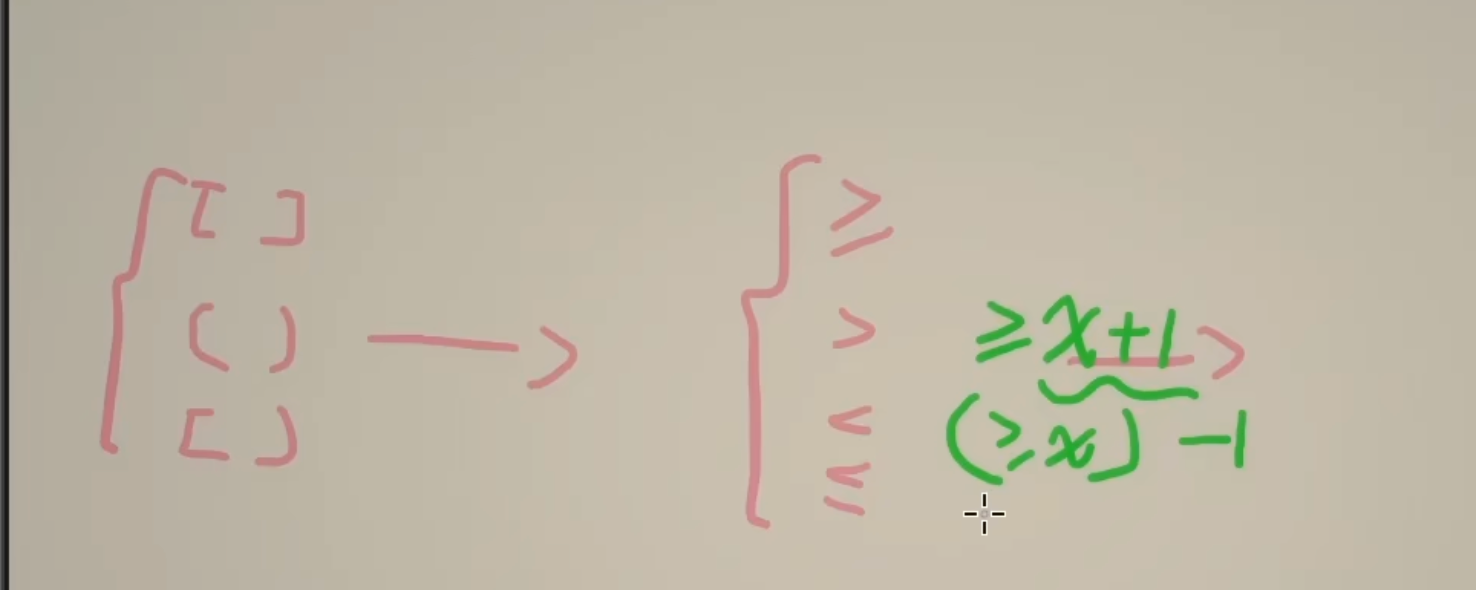 [ ]
( )
[ )
→
≥
>
<
≤
≥ x+1 >
(≥x) -1